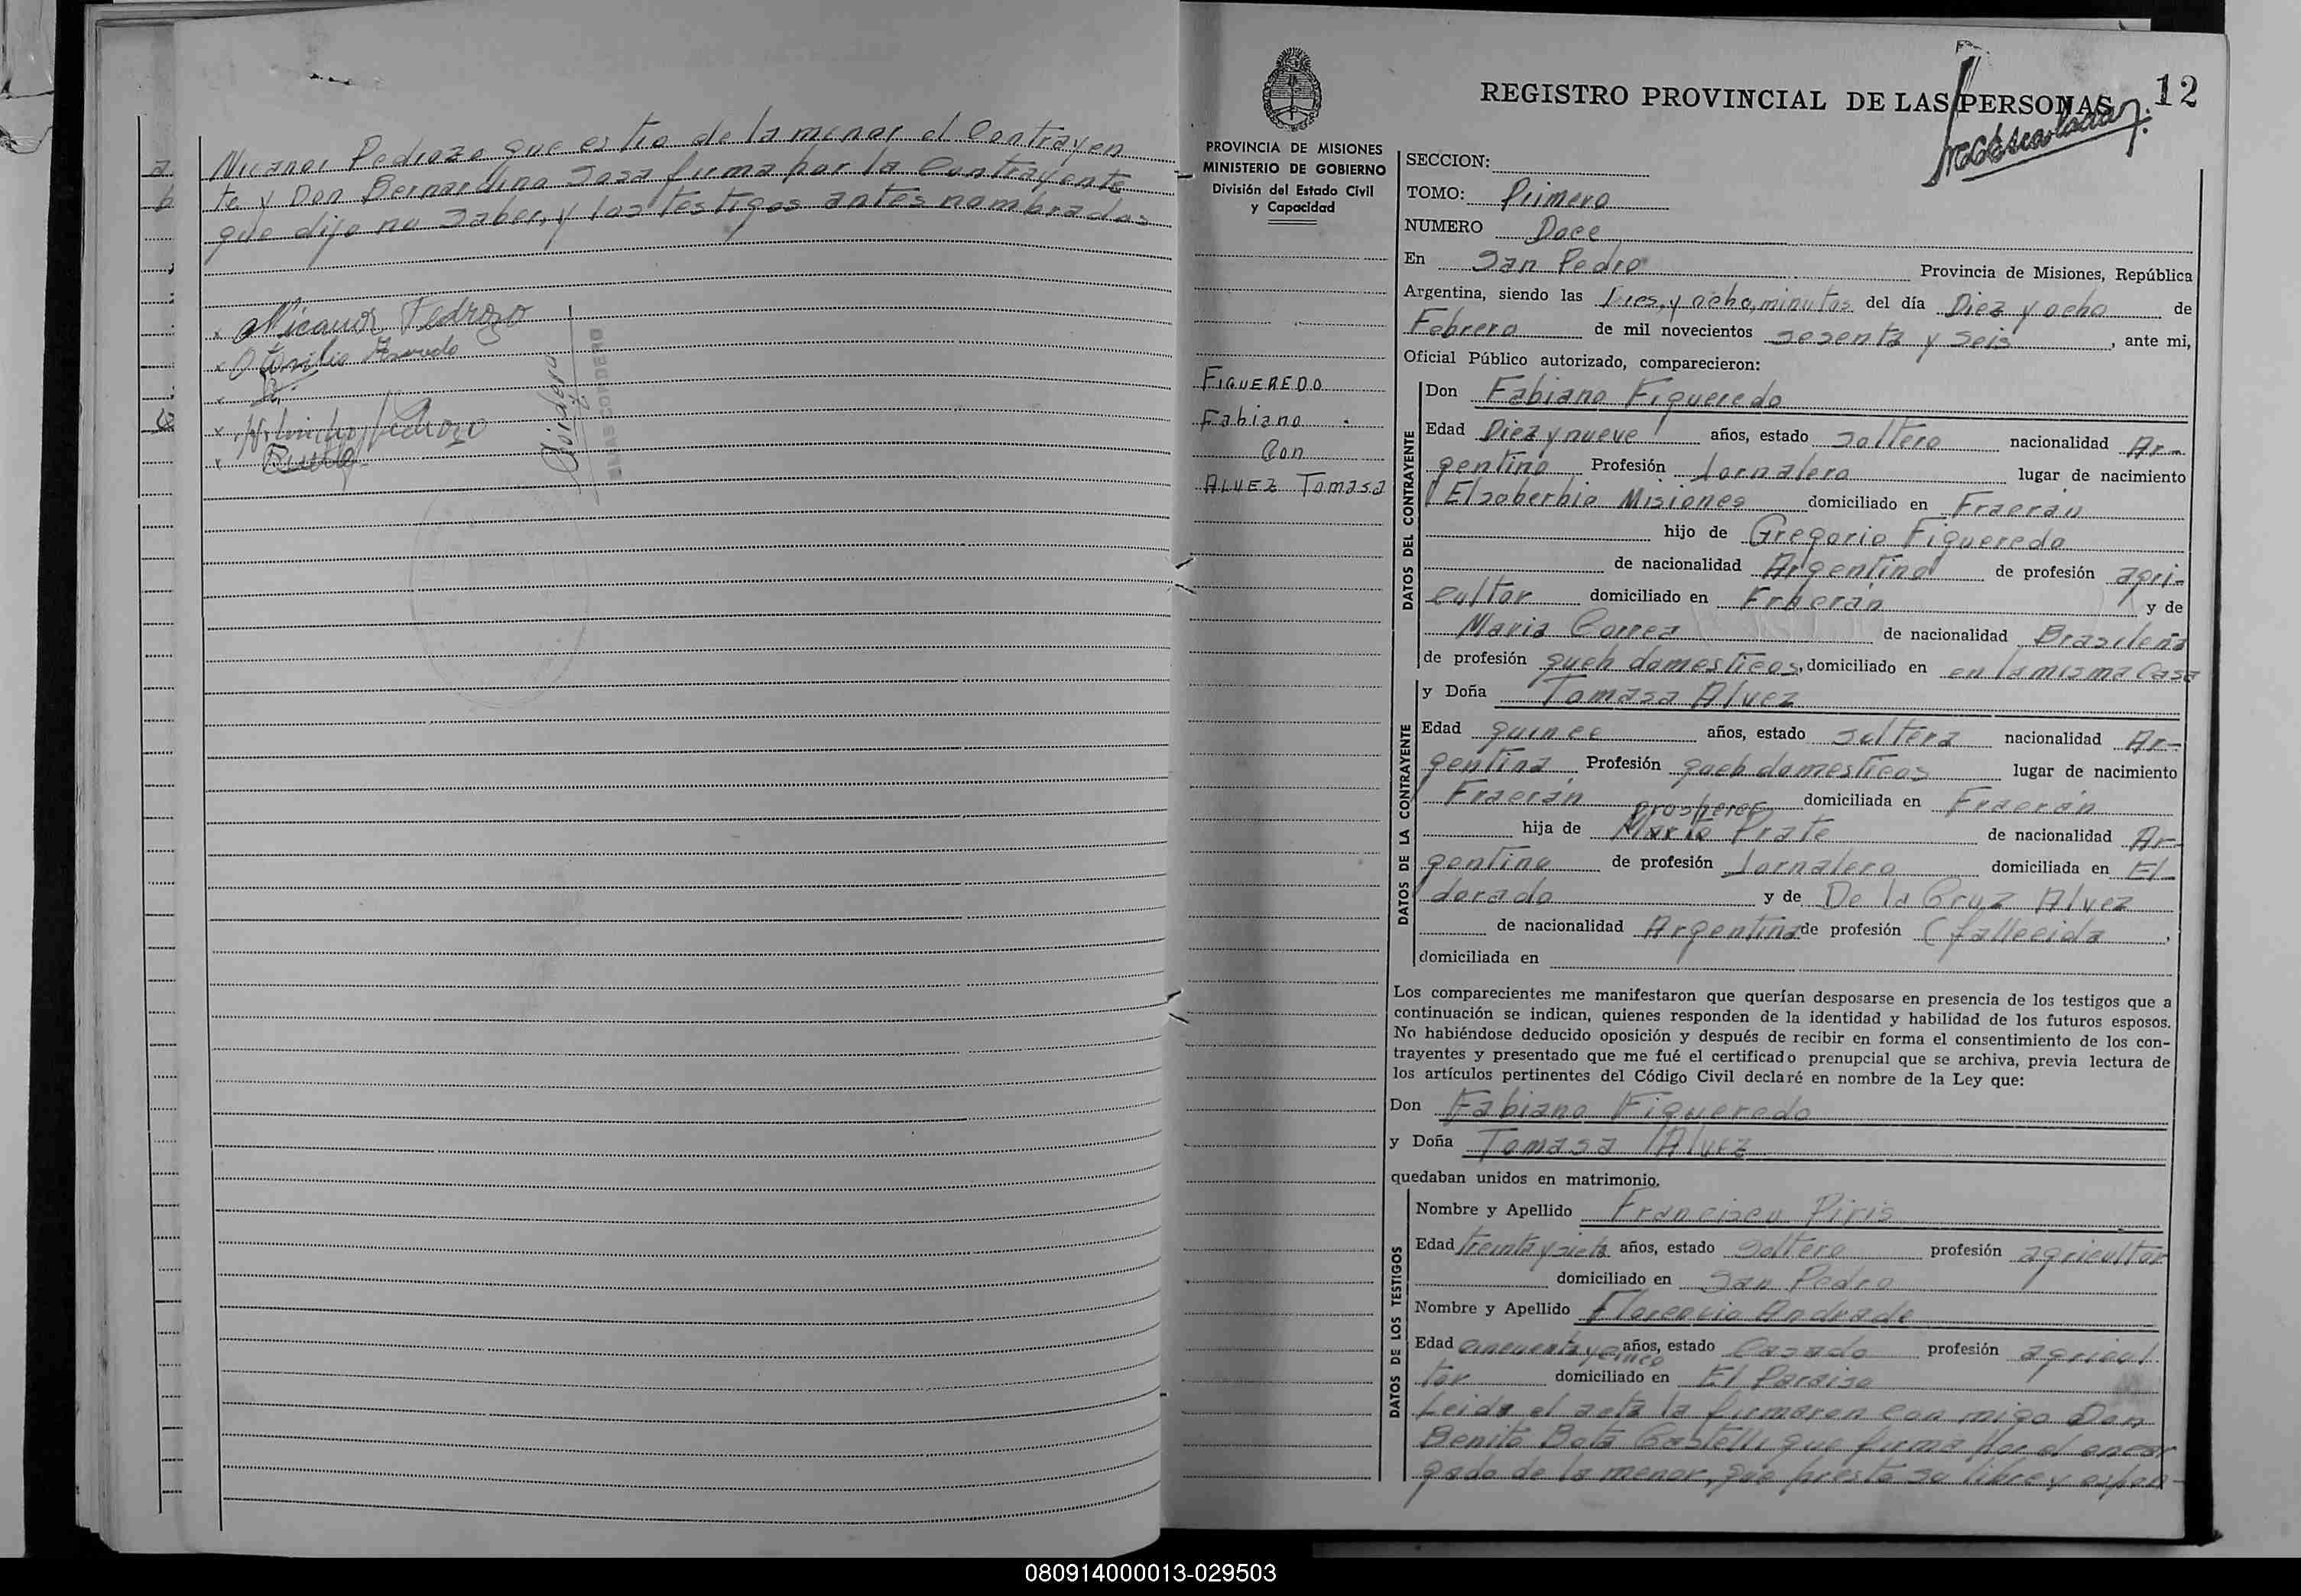 Nicanor Pedrozo que es tio de la menor el Contrayen
te y Don Bernardino Sosa firma por la Contrayente
que dijo no saber, y los testigos antes nombrados
Nicanor Pedrozo
12
REGISTRO PROVINCIAL DE LAS PERSONAS
PROVINCIA DE MISIONES
MINISTERIO DE GOBIERNO
División del Estado Civil
y Capacidad
FIGUEREDO
Fabiano
Con
ALVEZ Tomasa
SECCION:
TOMO: Primero
NUMERO Doce
En San Pedro Provincia de Misiones, República
Argentina, siendo las Dies y ocho, minutos del día Diez y ocho de
Febrero de mil novecientos sesenta y seis, ante mi,
Oficial Público autorizado, comparecieron:
DATOS DEL CONTRAYENTE
Don Fabiano Figueredo
Edad Diez y nueve años, estado soltero nacionalidad Ar-
gentino Profesión Jornalero lugar de nacimiento
Elsoberbio Misiones domiciliado en Fraeran
hijo de Gregorio Figueredo
de nacionalidad Argentino de profesión agri-
cultor domiciliado en Fraeran y de
Maria Correa de nacionalidad Brasileña
de profesión queh domesticos, domiciliado en en la misma Casa
DATOS DE LA CONTRAYENTE
y Doña Tomasa Alvez
Edad quince años, estado soltera nacionalidad Ar-
gentina Profesión queh domesticos lugar de nacimiento
Fraeran domiciliada en Fraeran
hija de Prate de nacionalidad Ar-
gentino de profesión Jornalero domiciliada en El-
dorado y de De la Cruz Alvez
de nacionalidad Argentina de profesión (fallecida,
domiciliada en
Los comparecientes me manifestaron que querían desposarse en presencia de los testigos que a
continuación se indican, quienes responden de la identidad y habilidad de los futuros esposos.
No habiéndose deducido oposición y después de recibir en forma el consentimiento de los con-
trayentes y presentado que me fué el certificado prenupcial que se archiva, previa lectura de
los artículos pertinentes del Código Civil declaré en nombre de la Ley que:
Don Fabiano Figueredo
y Doña Tomasa Alvez
quedaban unidos en matrimonio.
DATOS DE LOS TESTIGOS
Nombre y Apellido Francisco Piris
Edad treinta y siete años, estado soltero profesión agricultor
domiciliado en San Pedro
Nombre y Apellido Florencio Andrade
Edad cincuenta y cinco años, estado Casado profesión agricul
tor domiciliado en El Paraiso
Leida el acta la firmaron con migo Don
Benito Bota Castelli que firma por el encar
gado de la menor, que presta su libre y espon
080914000013-029503